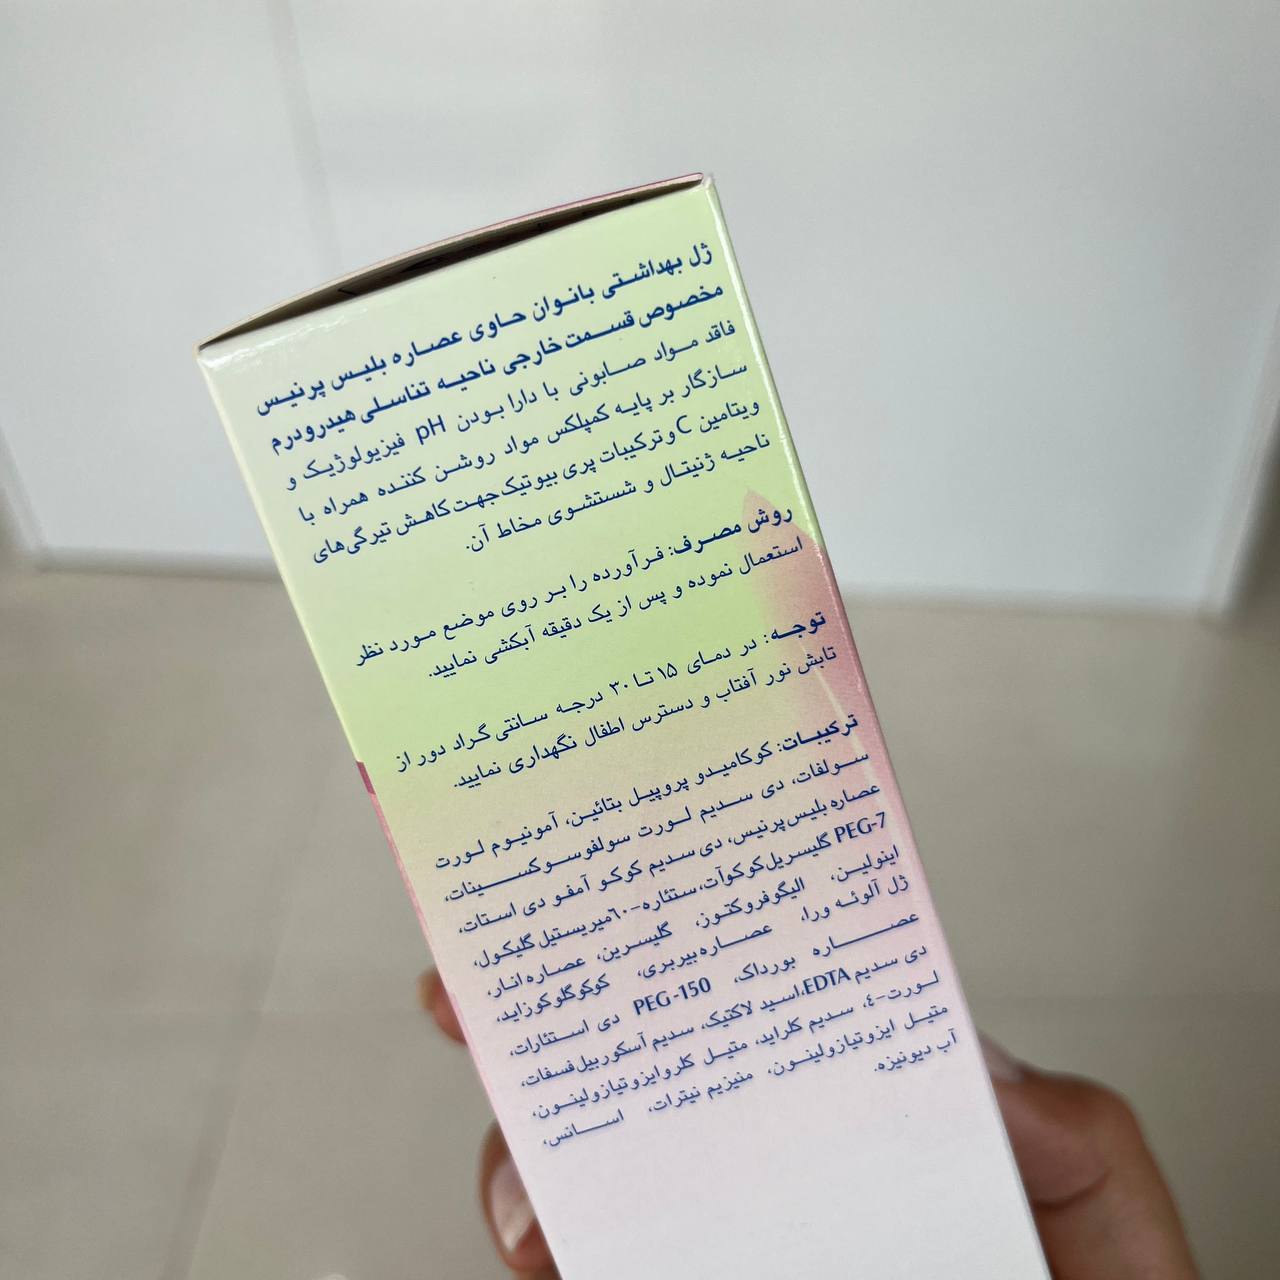 ژل بهداشتی بانوان حاوی عصاره بلیس پرنیس
مخصوص قسمت خارجی ناحیه تناسلی هیدرودرم
فاقد مواد صابونی با دارا بودن pH فیزیولوژیک و
سازگار بر پایه کمپلکس مواد روشن کننده همراه با
ویتامین C و ترکیبات پری بیوتیک جهت کاهش تیرگی‌های
ناحیه ژنیتال و شستشوی مخاط آن.
روش مصرف: فرآورده را بر روی موضع مورد نظر
استعمال نموده و پس از یک دقیقه آبکشی نمایید.
توجه: در دمای ۱۵ تا ۳۰ درجه سانتی گراد دور از
تابش نور آفتاب و دسترس اطفال نگهداری نمایید.
ترکیبات: کوکامیدو پروپیل بتائین، آمونیوم لورت
سولفات، دی سدیم لورت سولفوسوکسینات،
عصاره بلیس پرنیس، دی سدیم کوکو آمفو دی استات،
PEG-7 گلیسریل کوکوآت، ستئاره-٦٠ میریستیل گلیکول،
اینولین، الیگوفروکتوز، گلیسرین، عصاره انار،
ژل آلوئه ورا، عصاره بیربری، کوکوگلوکوزاید،
عصاره بورداک، PEG-150 دی استئارات،
دی سدیم EDTA، اسید لاکتیک، سدیم آسکوربیل فسفات،
لورت-٤، سدیم کلراید، متیل کلروایزوتیازولینون،
متیل ایزوتیازولینون، منیزیم نیترات، اسانس،
آب دیونیزه.